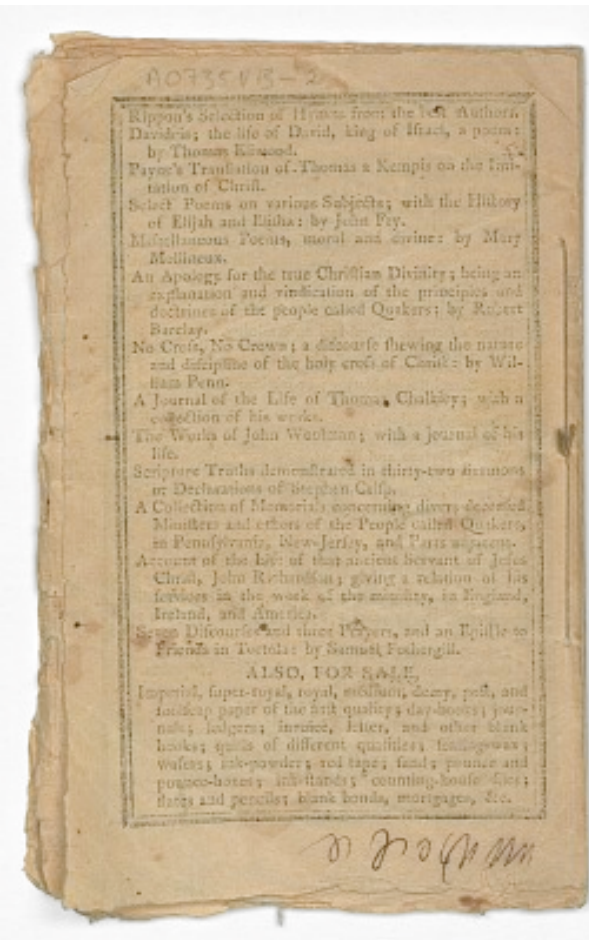 A0735VB-2
Rippon's Selection of Hymns from the best Authors.
Davideis; the life of David, king of Iſrael, a poem:
by Thomas Ellwood.
Payne's Tranſlation of Thomas a Kempis on the Imi-
tation of Chriſt.
Select Poems on various Subjects; with the Hiſtory
of Elijah and Eliſha: by John Fry.
Miſcellaneous Poems, moral and divine: by Mary
Mollineux.
An Apology for the true Chriſtian Divinity; being an
explanation and vindication of the principles and
doctrines of the people called Quakers; by Robert
Barclay.
No Croſs, No Crown; a diſcourſe ſhewing the nature
and diſcipline of the holy croſs of Chriſt: by Wil-
liam Penn.
A Journal of the Life of Thomas Chalkley; with a
collection of his works.
The Works of John Woolman; with a journal of his
life.
Scripture Truths demonſtrated in thirty-two ſermons
or Declarations of Stephen Criſp.
A Collection of Memorials concerning divers deceaſed
Miniſters and others of the People called Quakers,
in Pennſylvania, New-Jerſey, and Parts adjacent.
Account of the Life of that ancient Servant of Jeſus
Chriſt, John Richardſon; giving a relation of his
ſervices in the work of the miniſtry, in England,
Ireland, and America.
Seven Diſcourſes and three Prayers, and an Epiſtle to
Friends in Tortola: by Samuel Fothergill.
ALSO, FOR SALE,
Imperial, ſuper-royal, royal, medium, demy, poſt, and
foolſcap paper of the firſt quality; day-books; jour-
nals; ledgers; invoice, letter, and other blank
books; quills of different qualities; ſealing-wax;
wafers; ink-powder; red tape; ſand; pounce and
pounce-boxes; ink-ſtands; counting-houſe files;
ſlates and pencils; blank bonds, mortgages, &c.